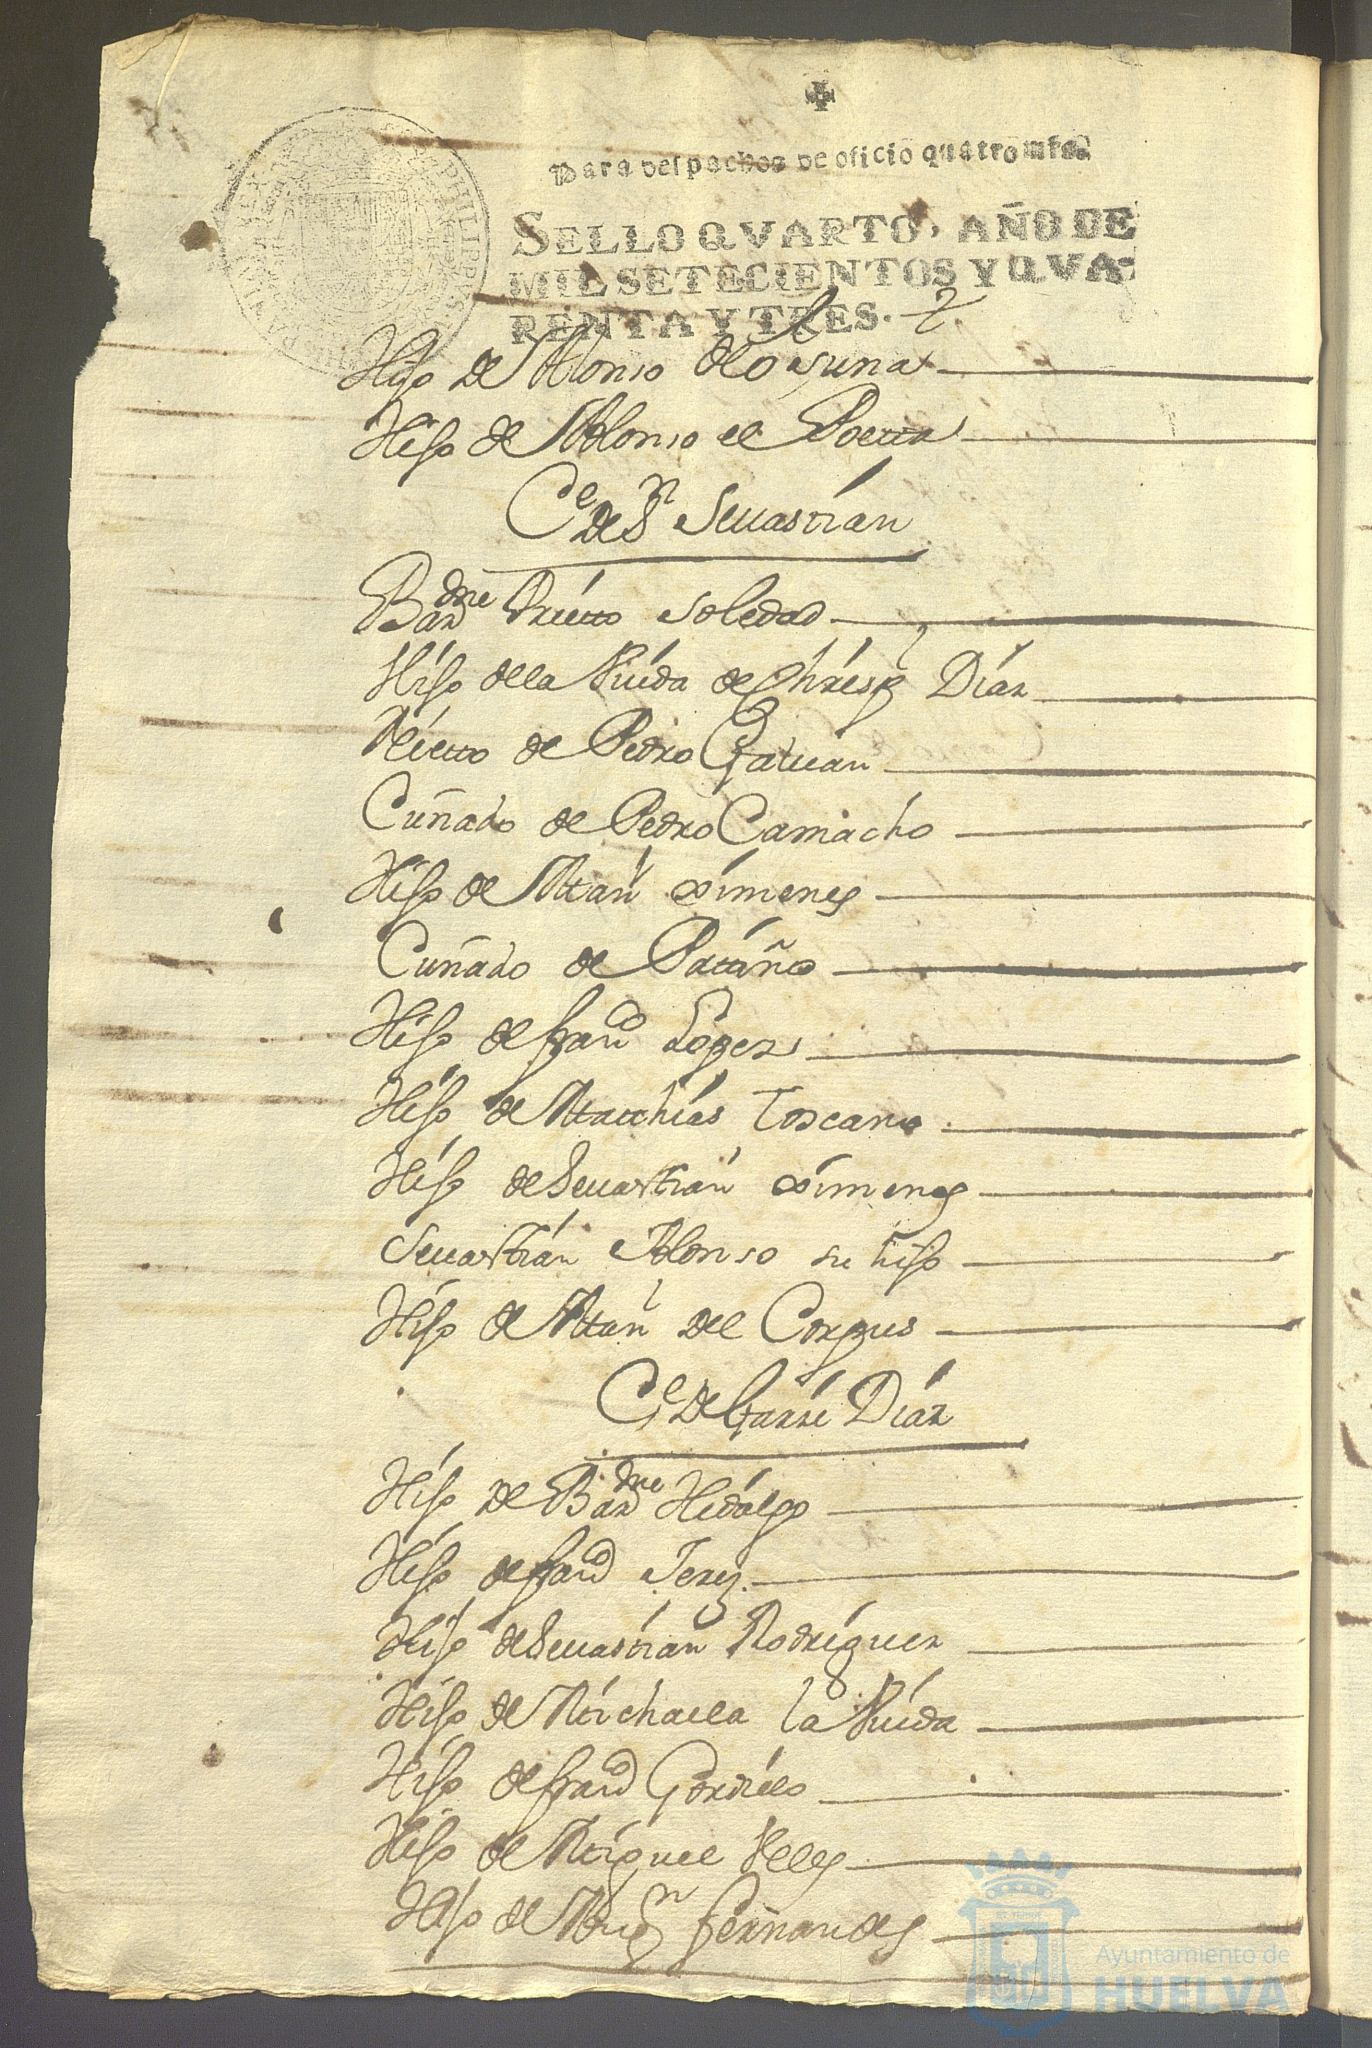 ✠
Para despachos de oficio quatro mrs.
SELLO QVARTO, AÑO DE
MIL SETECIENTOS Y QVA-
RENTA Y TRES.
PHILIPPVS
Hijo de Alonso de osuna
Hijo de Alonso el Poeta
Ce de Sn Seuastian
Barme Prietto Soledad
Hijo de la Viuda de Chrisp Diaz
Nietto de Pedro Galuan
Cuñado de Pedro Camacho
Hijo de Man Ximenes
Cuñado de Patiño
Hijo de franco Lopez
Hijo de Matthias Toscano
Hijo de Seuastian Ximenes
Seuastian Alonso su hijo
Hijo de Man del Corpus
Ce de Garzi Diaz
Hijo de Barme Hidalgo
Hijo de franco Jerez
Hijo de Seuastian Rodriguez
Hijo de Michaela la Viuda
Hijo de franco Gordillo
Hijo de Miguel Velez
Hijo de fernandes
Ayuntamiento de
HUELVA